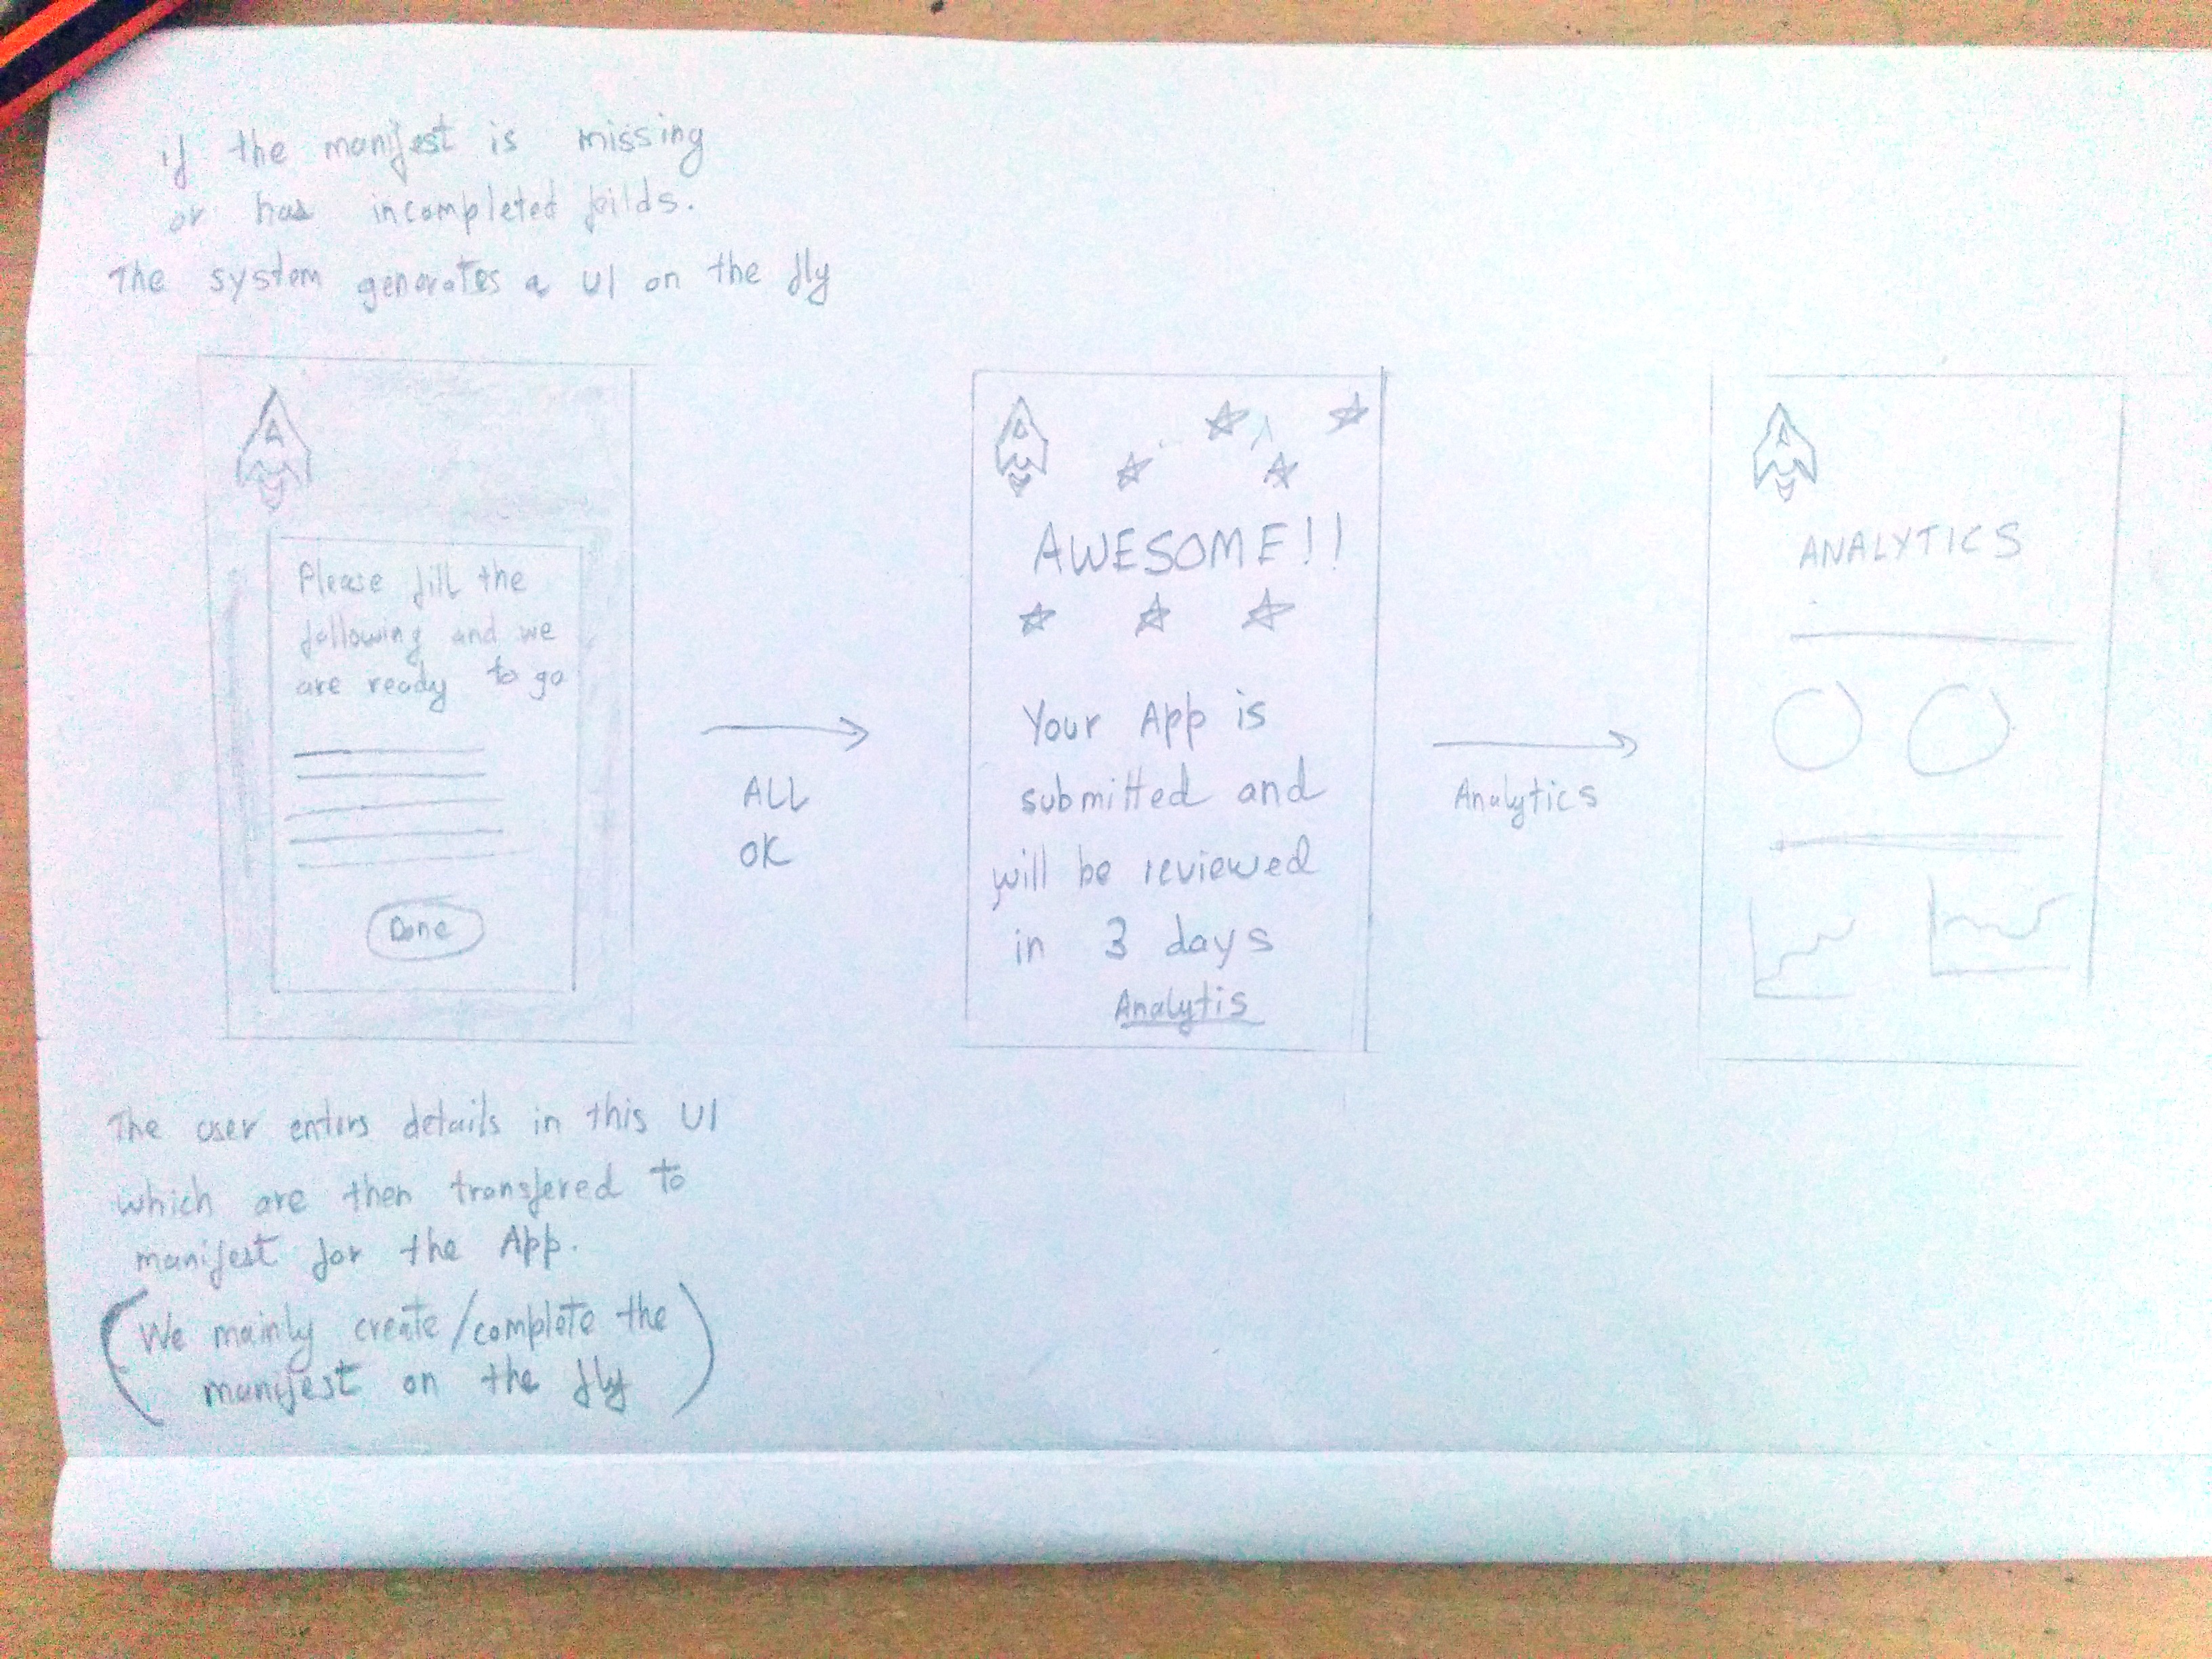 if the manifest is missing
or has incompleted feilds.
The system generates a UI on the fly
A
Please fill the
following and we
are ready to go
Done
ALL
OK
A
AWESOME!!
Your App is
submitted and
will be reviewed
in 3 days
Analytis
Analytics
A
ANALYTICS
The user enters details in this UI
which are then transfered to
manifest for the App.
(We mainly create/complete the
manifest on the fly)